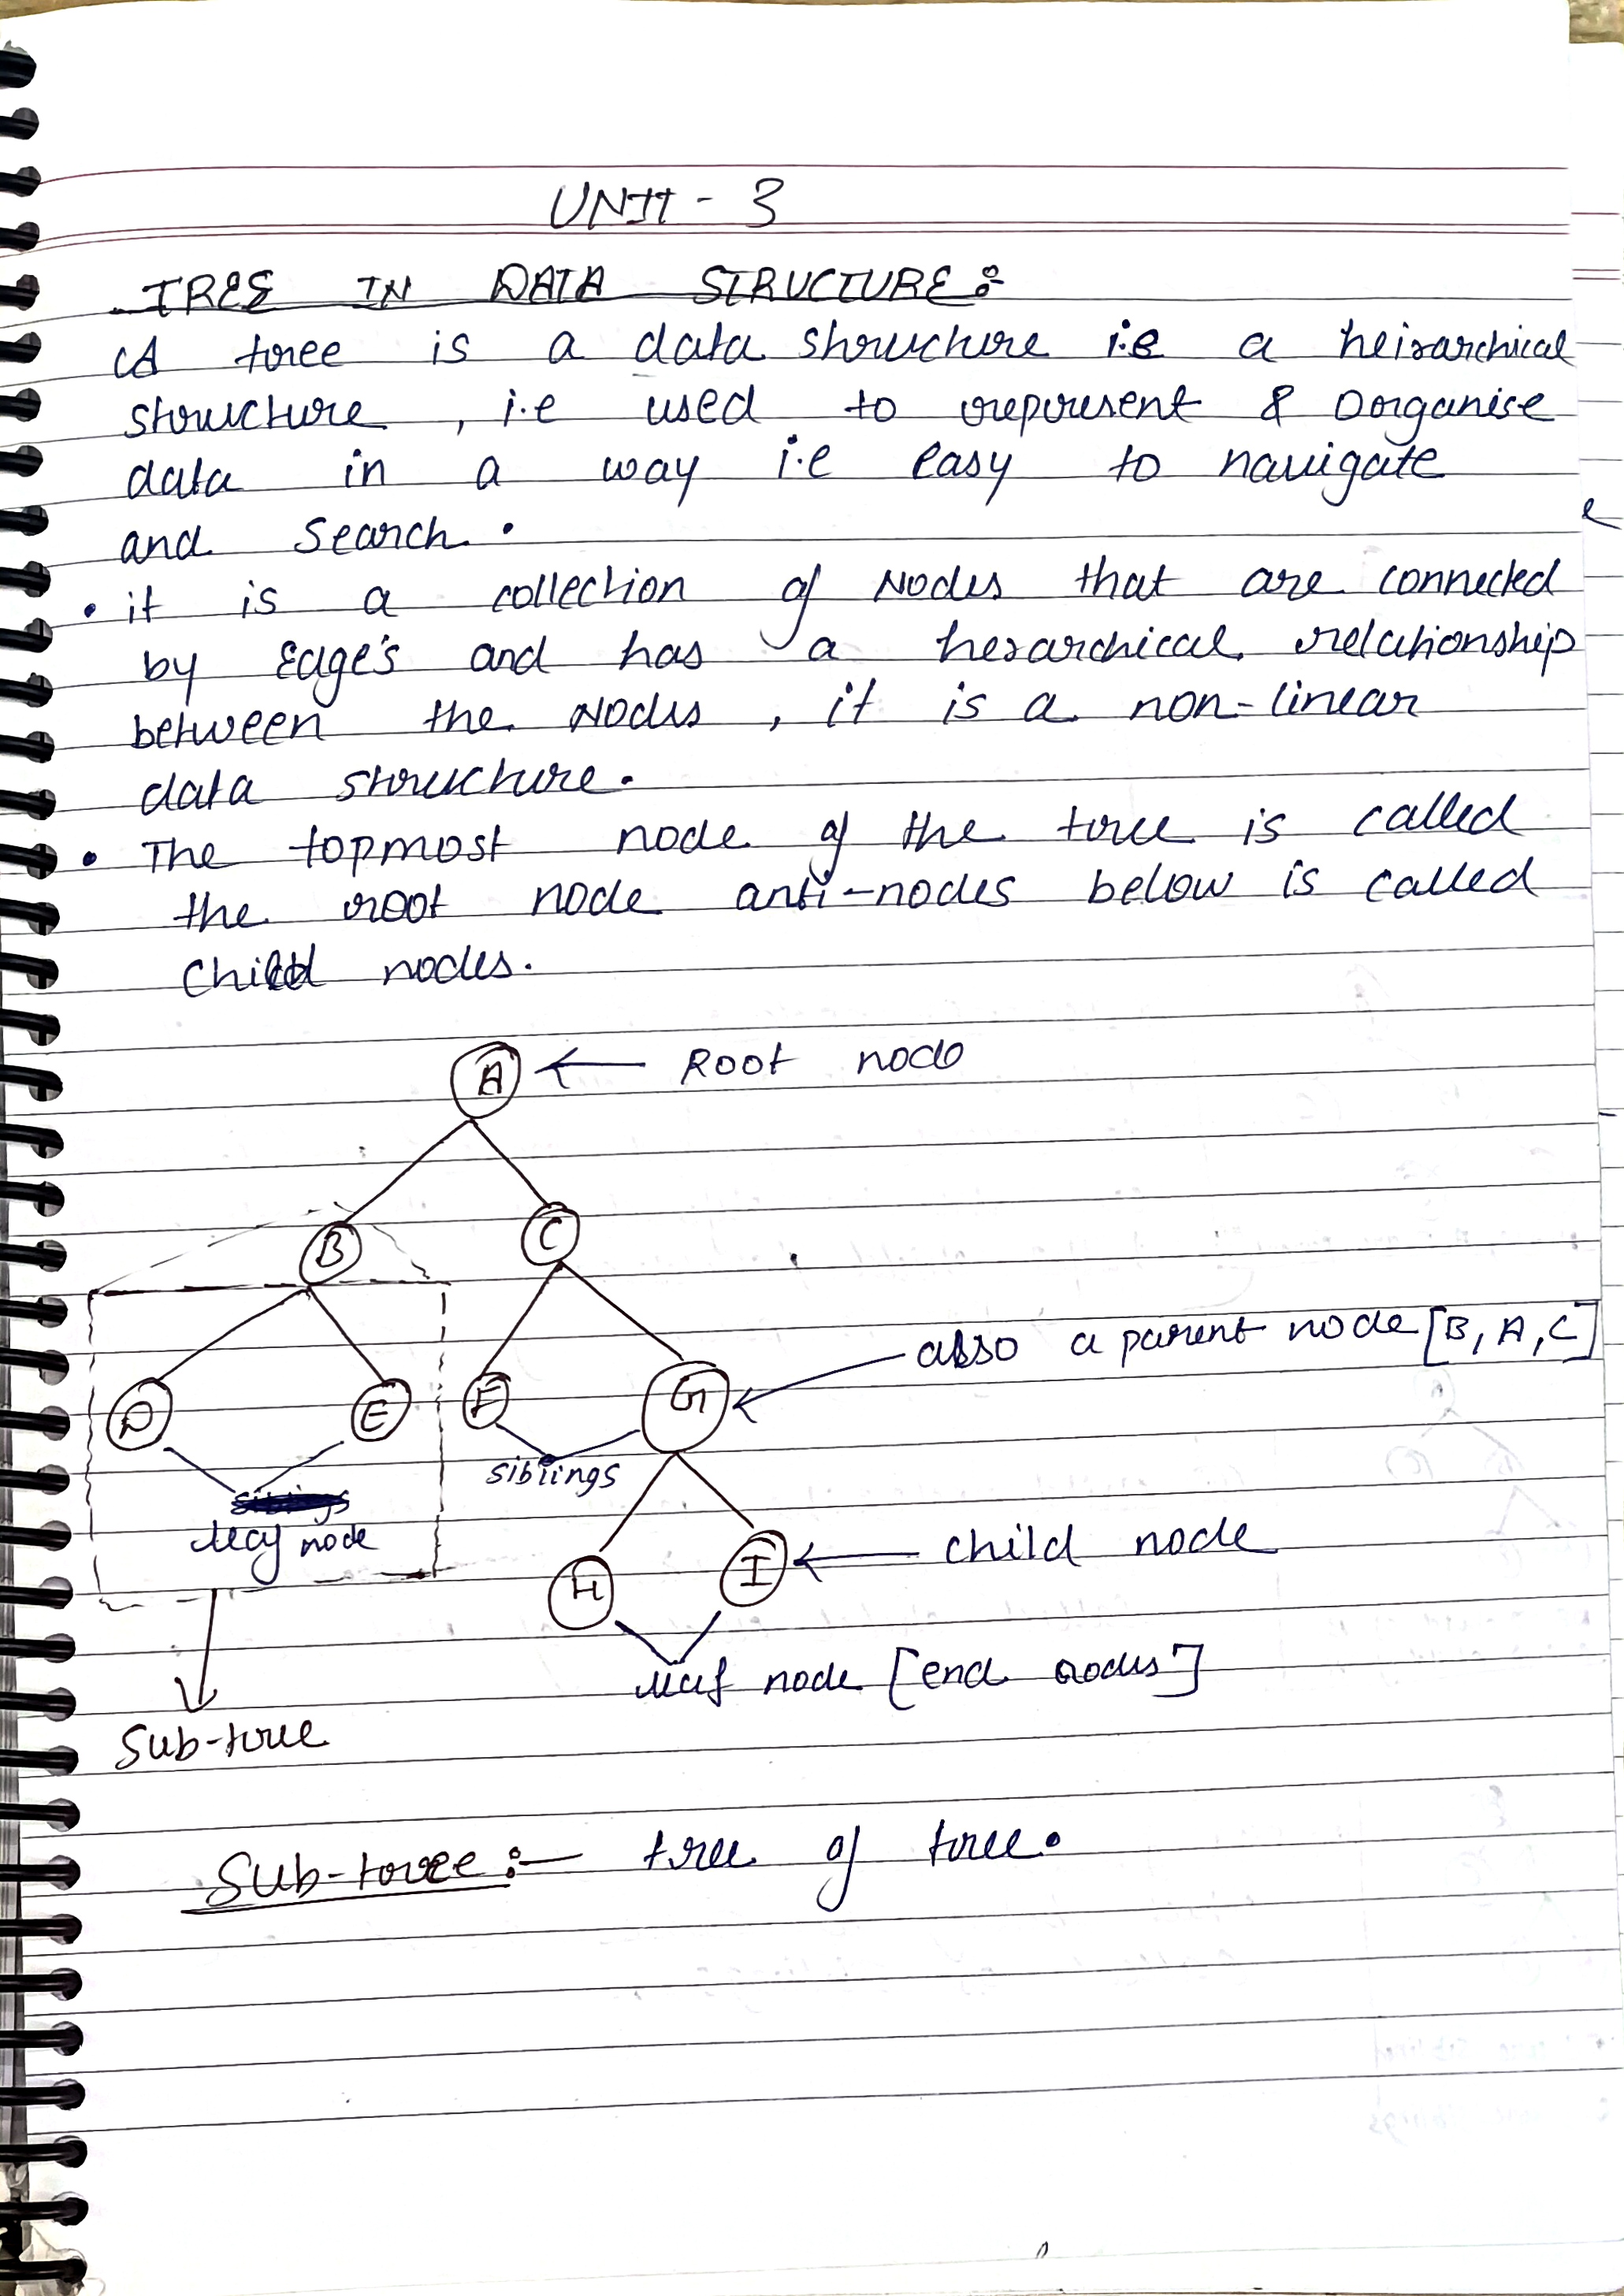 UNIT - 3
TREE IN DATA STRUCTURE :-
A tree is a data structure i.e a heirarchical
structure , i.e used to represent & Organise
data in a way i.e easy to navigate
and Search .
• it is a collection of Nodes that are connected
by Edge's and has a herarchical relationship
between the Nodes , it is a non-linear
data structure.
• The topmost node of the tree is called
the root node anti-nodes below is called
Child nodes.
A ← Root node
B C
also a parent node [B, A, C]
D E F G
siblings
leaf node
I ← child node
H
leaf node [end nodes]
Sub-tree
Sub-tree :- tree of tree.